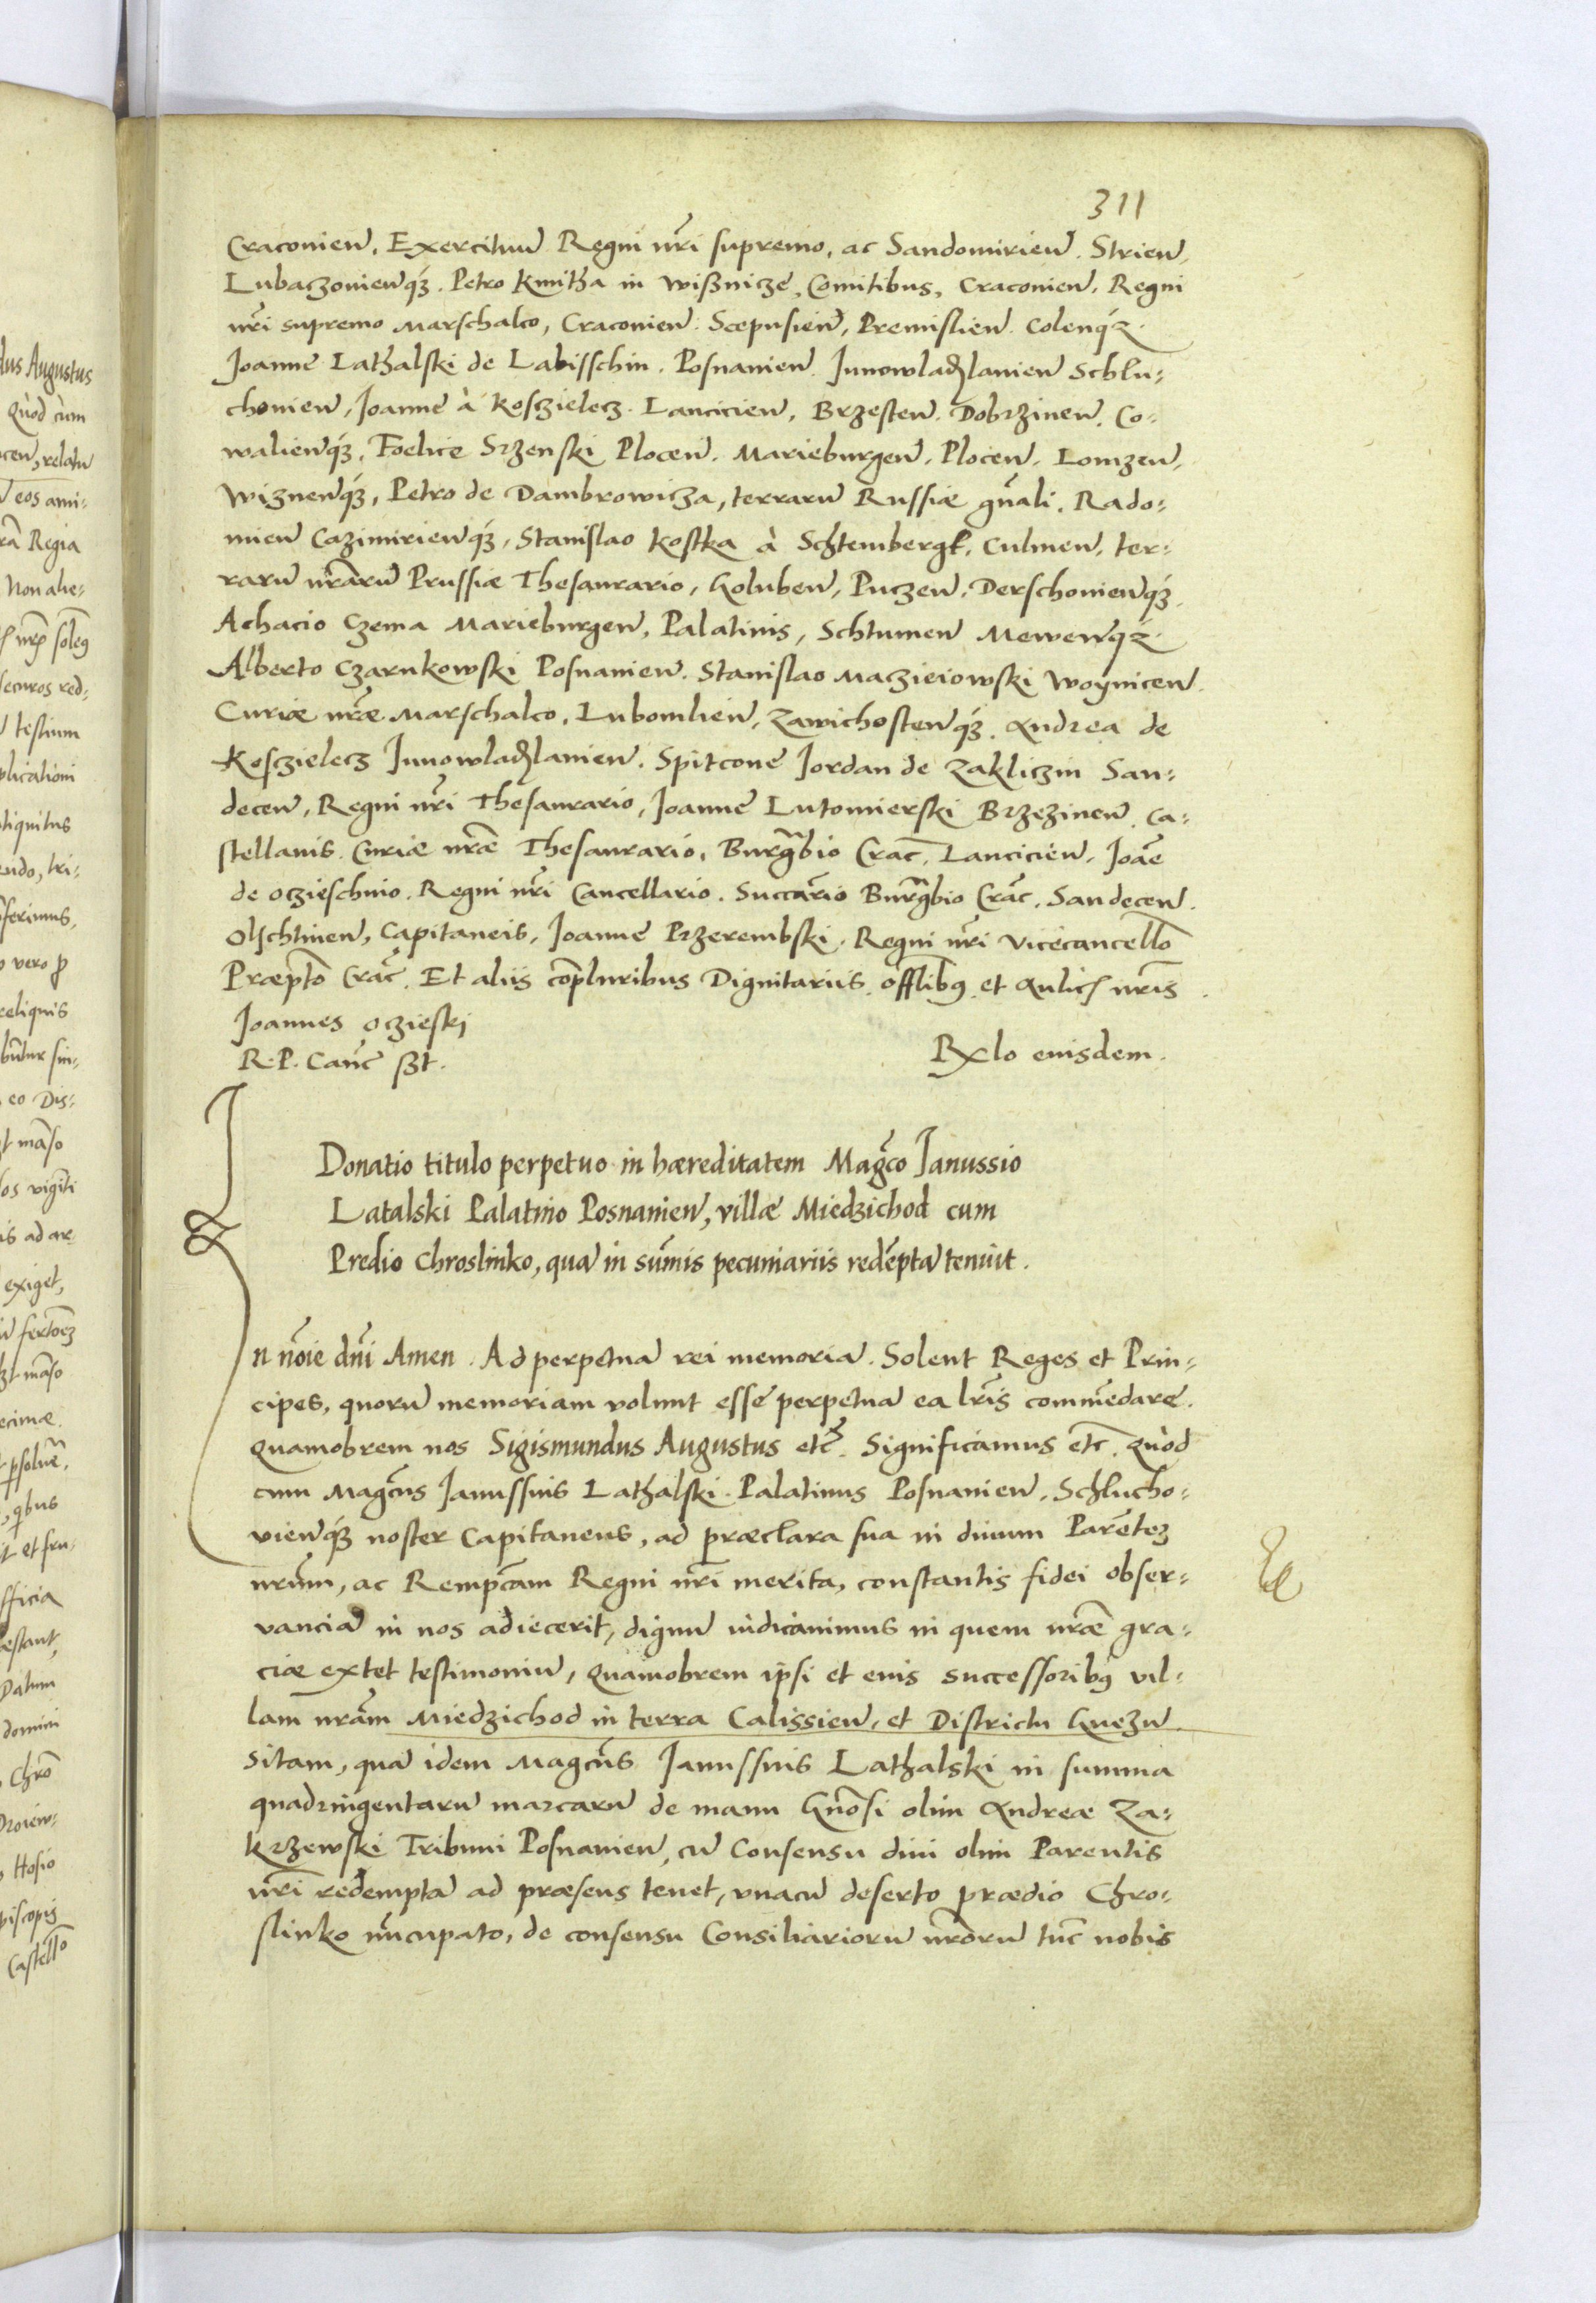 311
Craconien̄. Exercituū Regni nr̄i supremo, ac Sandomirien̄. Strien̄.
Lubaczonien̄qz. Petro Kmitha in Wißnicze, Comitibus, Craconien̄. Regni
nr̄i supremo Marschalco, Craconien̄. Scepusien̄, Premislien̄. Colen̄qz.
Joanne Lathalski de Labisschin. Posnanien̄. Junowladzlanien̄ Schlu-
chonien̄, Joanne à Kosczielecz. Lancicien̄, Brzesten̄. Dobrzinen̄. Co-
walien̄qz, Foelice Srzenski Plocen̄. Marieburgen̄. Plocen̄. Lomzen̄,
Wiznen̄qz, Petro de Dambrowicza, terrarū Russiæ gn̄ali. Rado-
mien̄ Cazimirien̄qz, Stanislao Kostka à Schtembergk, Culmen̄, ter-
rarū nr̄arū Prussiæ Thesaurario, Goluben̄, Puczen̄, Derschonien̄qz.
Achacio Czema Marieburgen̄, Palatinis, Schtumen̄ Mewen̄qz.
Alberto Czarnkowski Posnanien̄. Stanislao Maczieiowski Woynicen̄.
Curiæ nr̄æ Marschalco, Lubomlien̄, Zawichosten̄qz. Andrea de
Kosczielecz Junowladzlanien̄. Spitcone Jordan de Zakliczin San-
decen̄, Regni nr̄i Thesaurario, Joanne Lutomierski Brzezinen̄. Ca-
stellanis. Curiæ nr̄æ Thesaurario, Burgr̄bio Crac̄. Lancicien̄. Joāe
de Oczieschino. Regni nr̄i Cancellario. Succār̄io Burgr̄bio Crac̄. Sandecen̄.
Olschtinen̄, Capitaneis, Joanne Przerembski. Regni nr̄i Vicecancell̄o
Præpt̄o Crac̄. Et aliis cōpluribus Dignitariis. Offl̄ibꝰ et Aulicis nr̄is.
Joannes Oczieski
R. P. Canc̄ sst.
Rx̄lo eiusdem.
Donatio titulo perpetuo in hæreditatem Magc̄o Janussio
Latalski Palatino Posnanien̄, villæ Miedzichod cum
Predio Chroslinko, quā in sum̄is pecuniariis redēptā tenuit.
In nōīe dn̄i Amen. Ad perpetuā rei memoriā. Solent Reges et Prin-
cipes, quorū memoriam volunt esse perpetuā ea lr̄is commēdare.
Quamobrem nos Sigismundus Augustus etc̄. Significamus etc̄. Quòd
cum Magcūs Janussius Lathalski. Palatinus Posnanien̄. Schlucho-
vien̄qz noster Capitaneus, ad præclara sua in diuum Parētez
nr̄um, ac Rempc̄am Regni nr̄i merita, constantis fidei obser-
vanciā in nos adiecerit, dignū iudicauimus in quem nr̄æ gra-
ciæ extet testimoniū, Quamobrem ipsi et eius successoribꝰ vil-
lam nr̄am Miedzichod in terra Calissien̄, et Districtu Gnezn̄
sitam, quā idem Magcūs Janussius Lathalski in summa
quadringentarū marcarū de manu Gnōsi olim Andreæ Za-
krzewski Tribuni Posnanien̄, cū Consensu diui olim Parentis
nr̄i redemptā ad præsens tenet, vnacū deserto prædio Chro-
slinko nūcupato, de consensu Consiliariorū nr̄orū tūc nobis